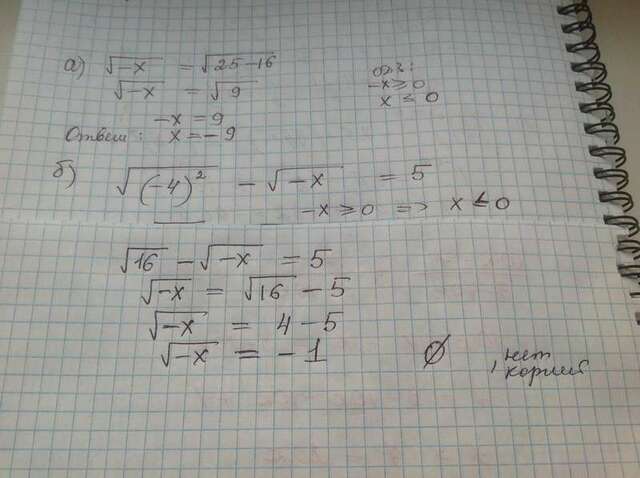 а) √-x = √25-16
√-x = √9
-x = 9
Ответ: x = -9
ОДЗ:
-x ≥ 0
x ≤ 0
б) √(-4)² - √-x = 5
-x ≥ 0 => x ≤ 0
√16 - √-x = 5
√-x = √16 - 5
√-x = 4 - 5
√-x = -1
∅, нет
корней